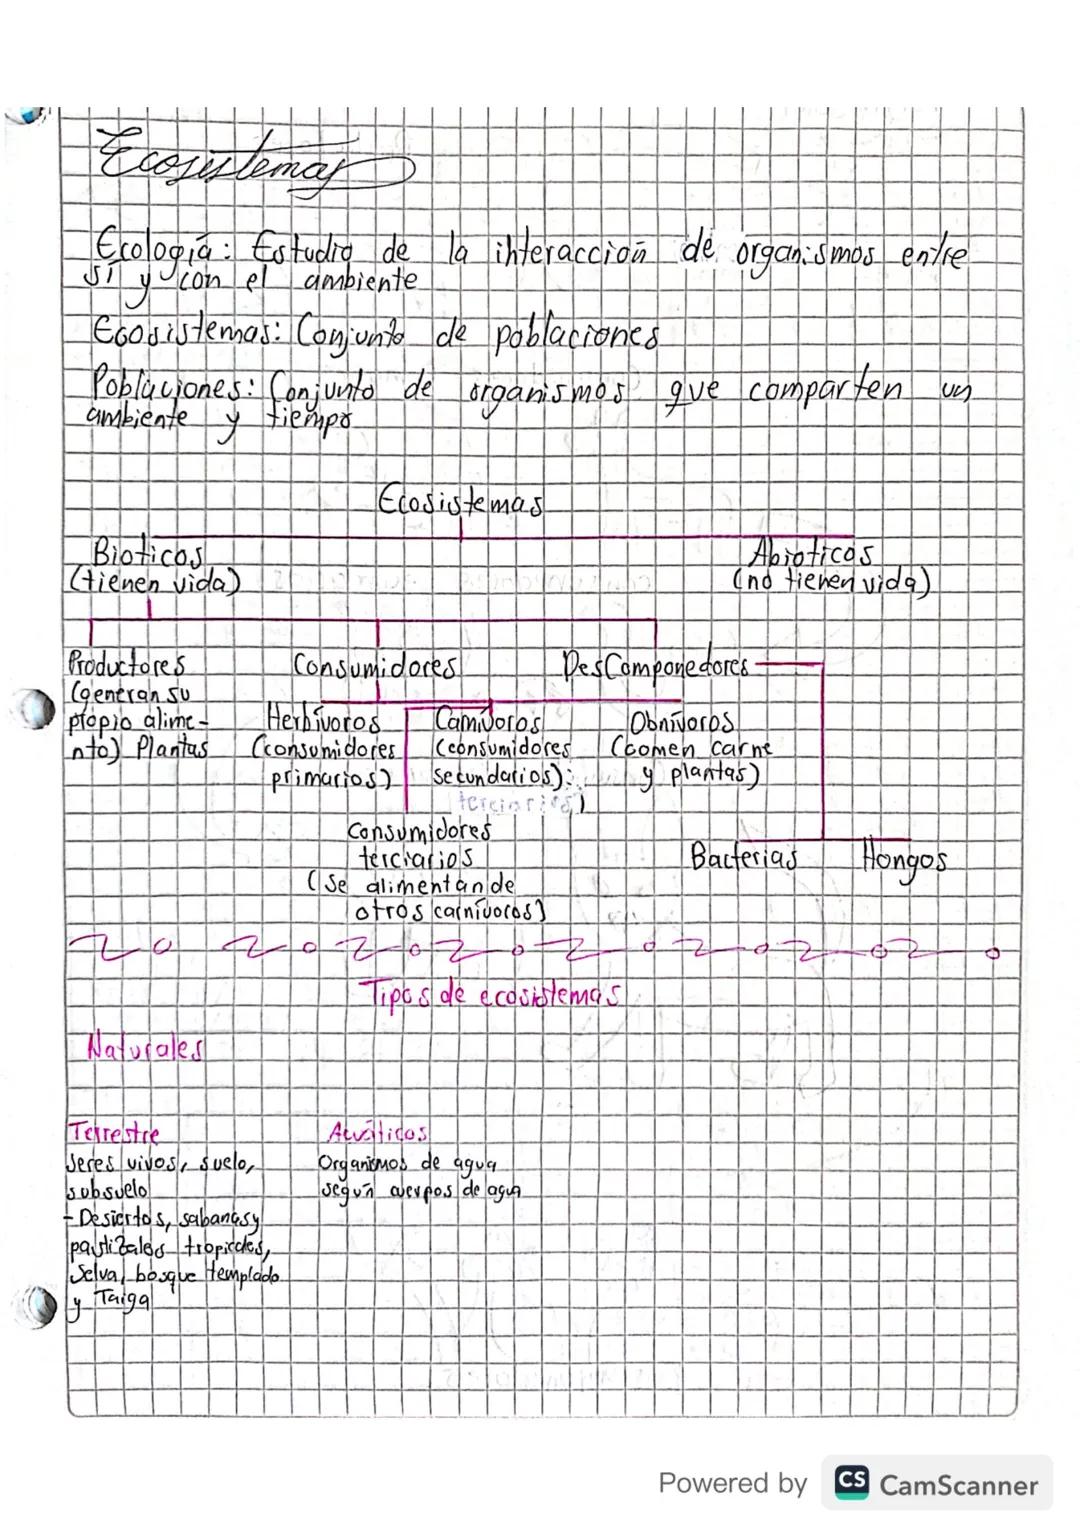 Ecosistemas
Ecología: Estudio de la interacción de organismos entre
sí y con el ambiente
Ecosistemas: Conjunto de poblaciones
Poblaciones: Conjunto de organismos que comparten un
ambiente y tiempo
Ecosistemas
Bioticos
(tienen vida)
Abioticos
(no tienen vida)
Productores
(generan su
propio alime-
nto) Plantas
Consumidores
DesComponedores
Herbívoros
(consumidores
primarios)
Carnívoros
(consumidores
secundarios);
terciarios)
Obnívoros
(comen carne
y plantas)
Consumidores
terciarios
(Se alimentan de
otros carnívoros)
Bacterias
Hongos
Tipos de ecosistemas
Naturales
Terrestre
Seres vivos, suelo,
subsuelo
- Desiertos, sabanas y
pastizales tropicales,
Selva, bosque templado
y Taiga
Acuáticos
Organismos de agua
según cuerpos de agua
Powered by CS CamScanner